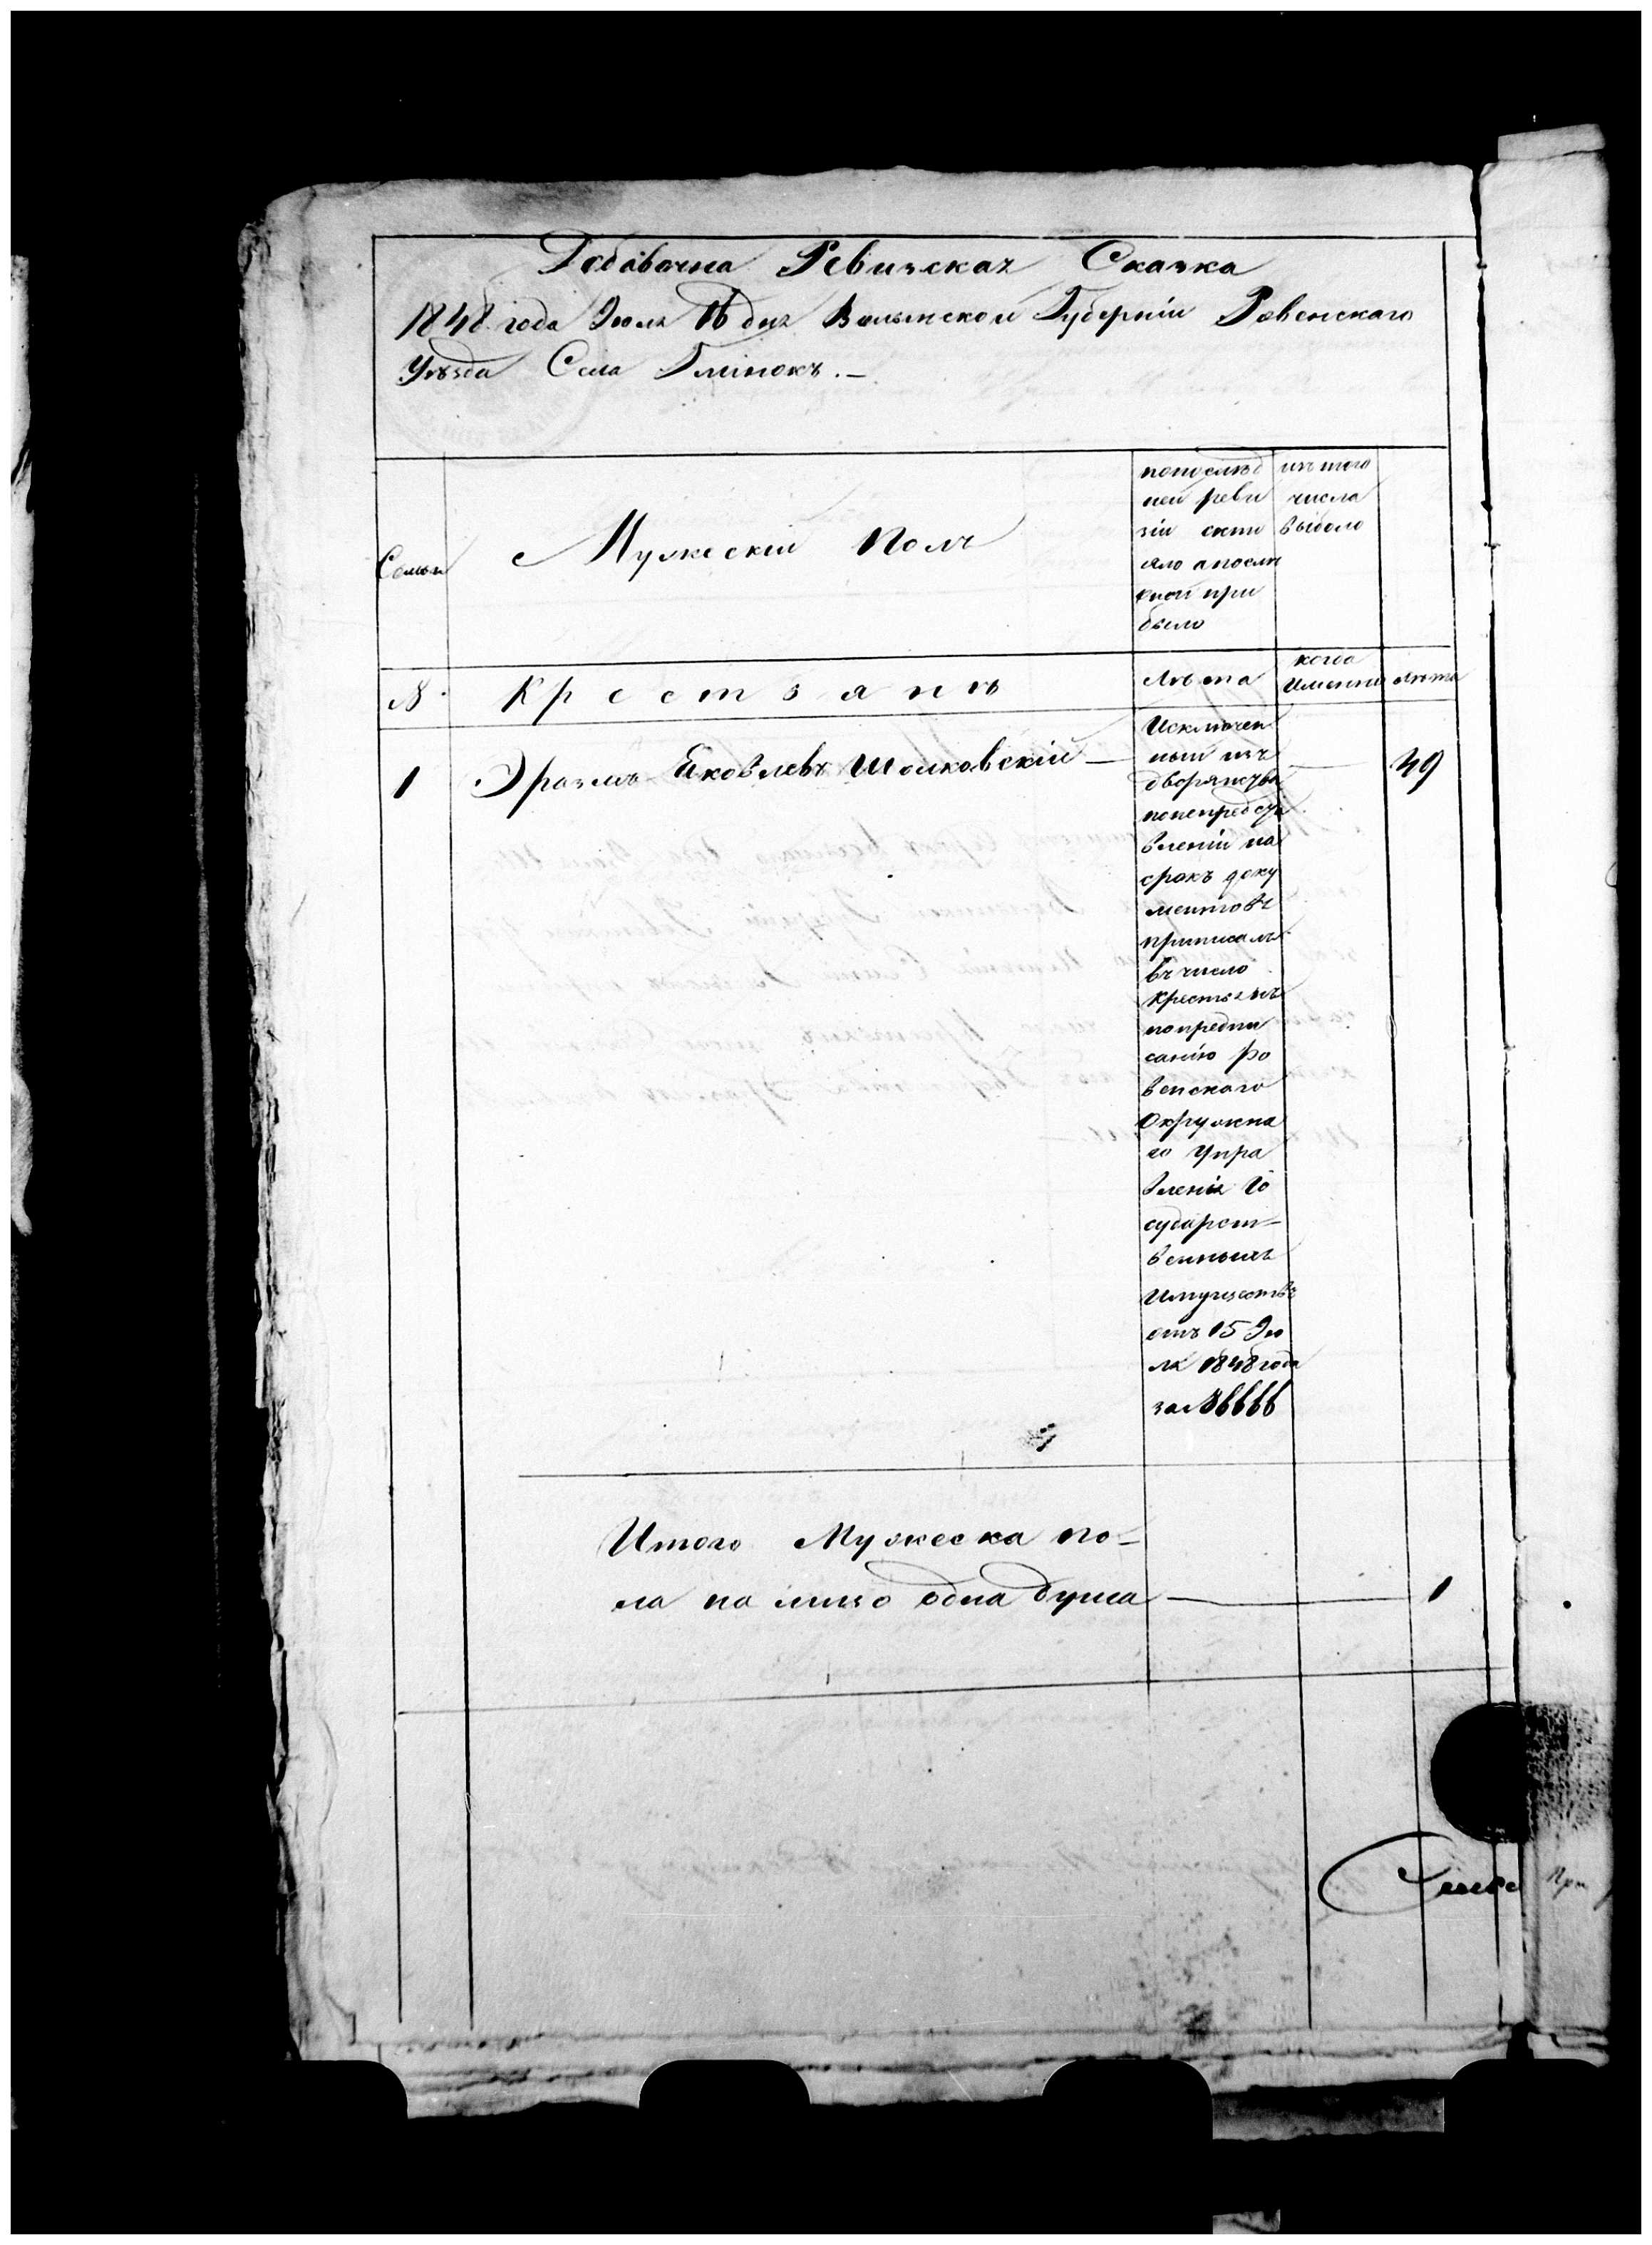 Добавочна Ревизская Сказка
1848 года Июля 16 дня Волынской Губерніи Ровенскаго
Уѣзда Села Глинокъ.—
Семьи
Мужескій Полъ
попослѣд
ней реви
зіи состо
яло а послѣ
оной при
было
изъ того
числа
выбыло
№
Крестьянъ
Лѣта
когда
Именно
лѣта
1
Эразмъ Яковлевъ Шолковскій —
Исключен
ный изъ
дворянства
понепредста
вленіи на
срокъ доку
ментовъ
приписалъ
въ число
Крестьянъ
попредпи
санію Ро
венскаго
Окружна
го Упра
вленія Го
сударст-
венныхъ
Имуществъ
отъ 15 Ию
ля 1848 года
за №6666
49
Итого Мужеска по-
ла на лицо одна душа — 1